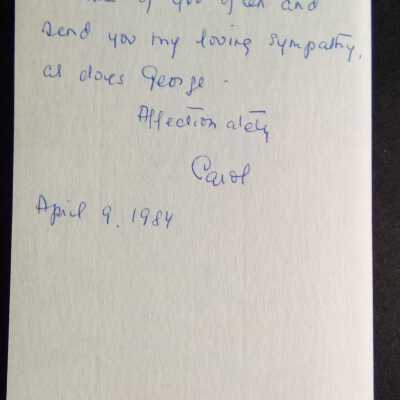 of you often and
send you my loving sympathy,
as does George.
Affectionately
Carol
April 9, 1984